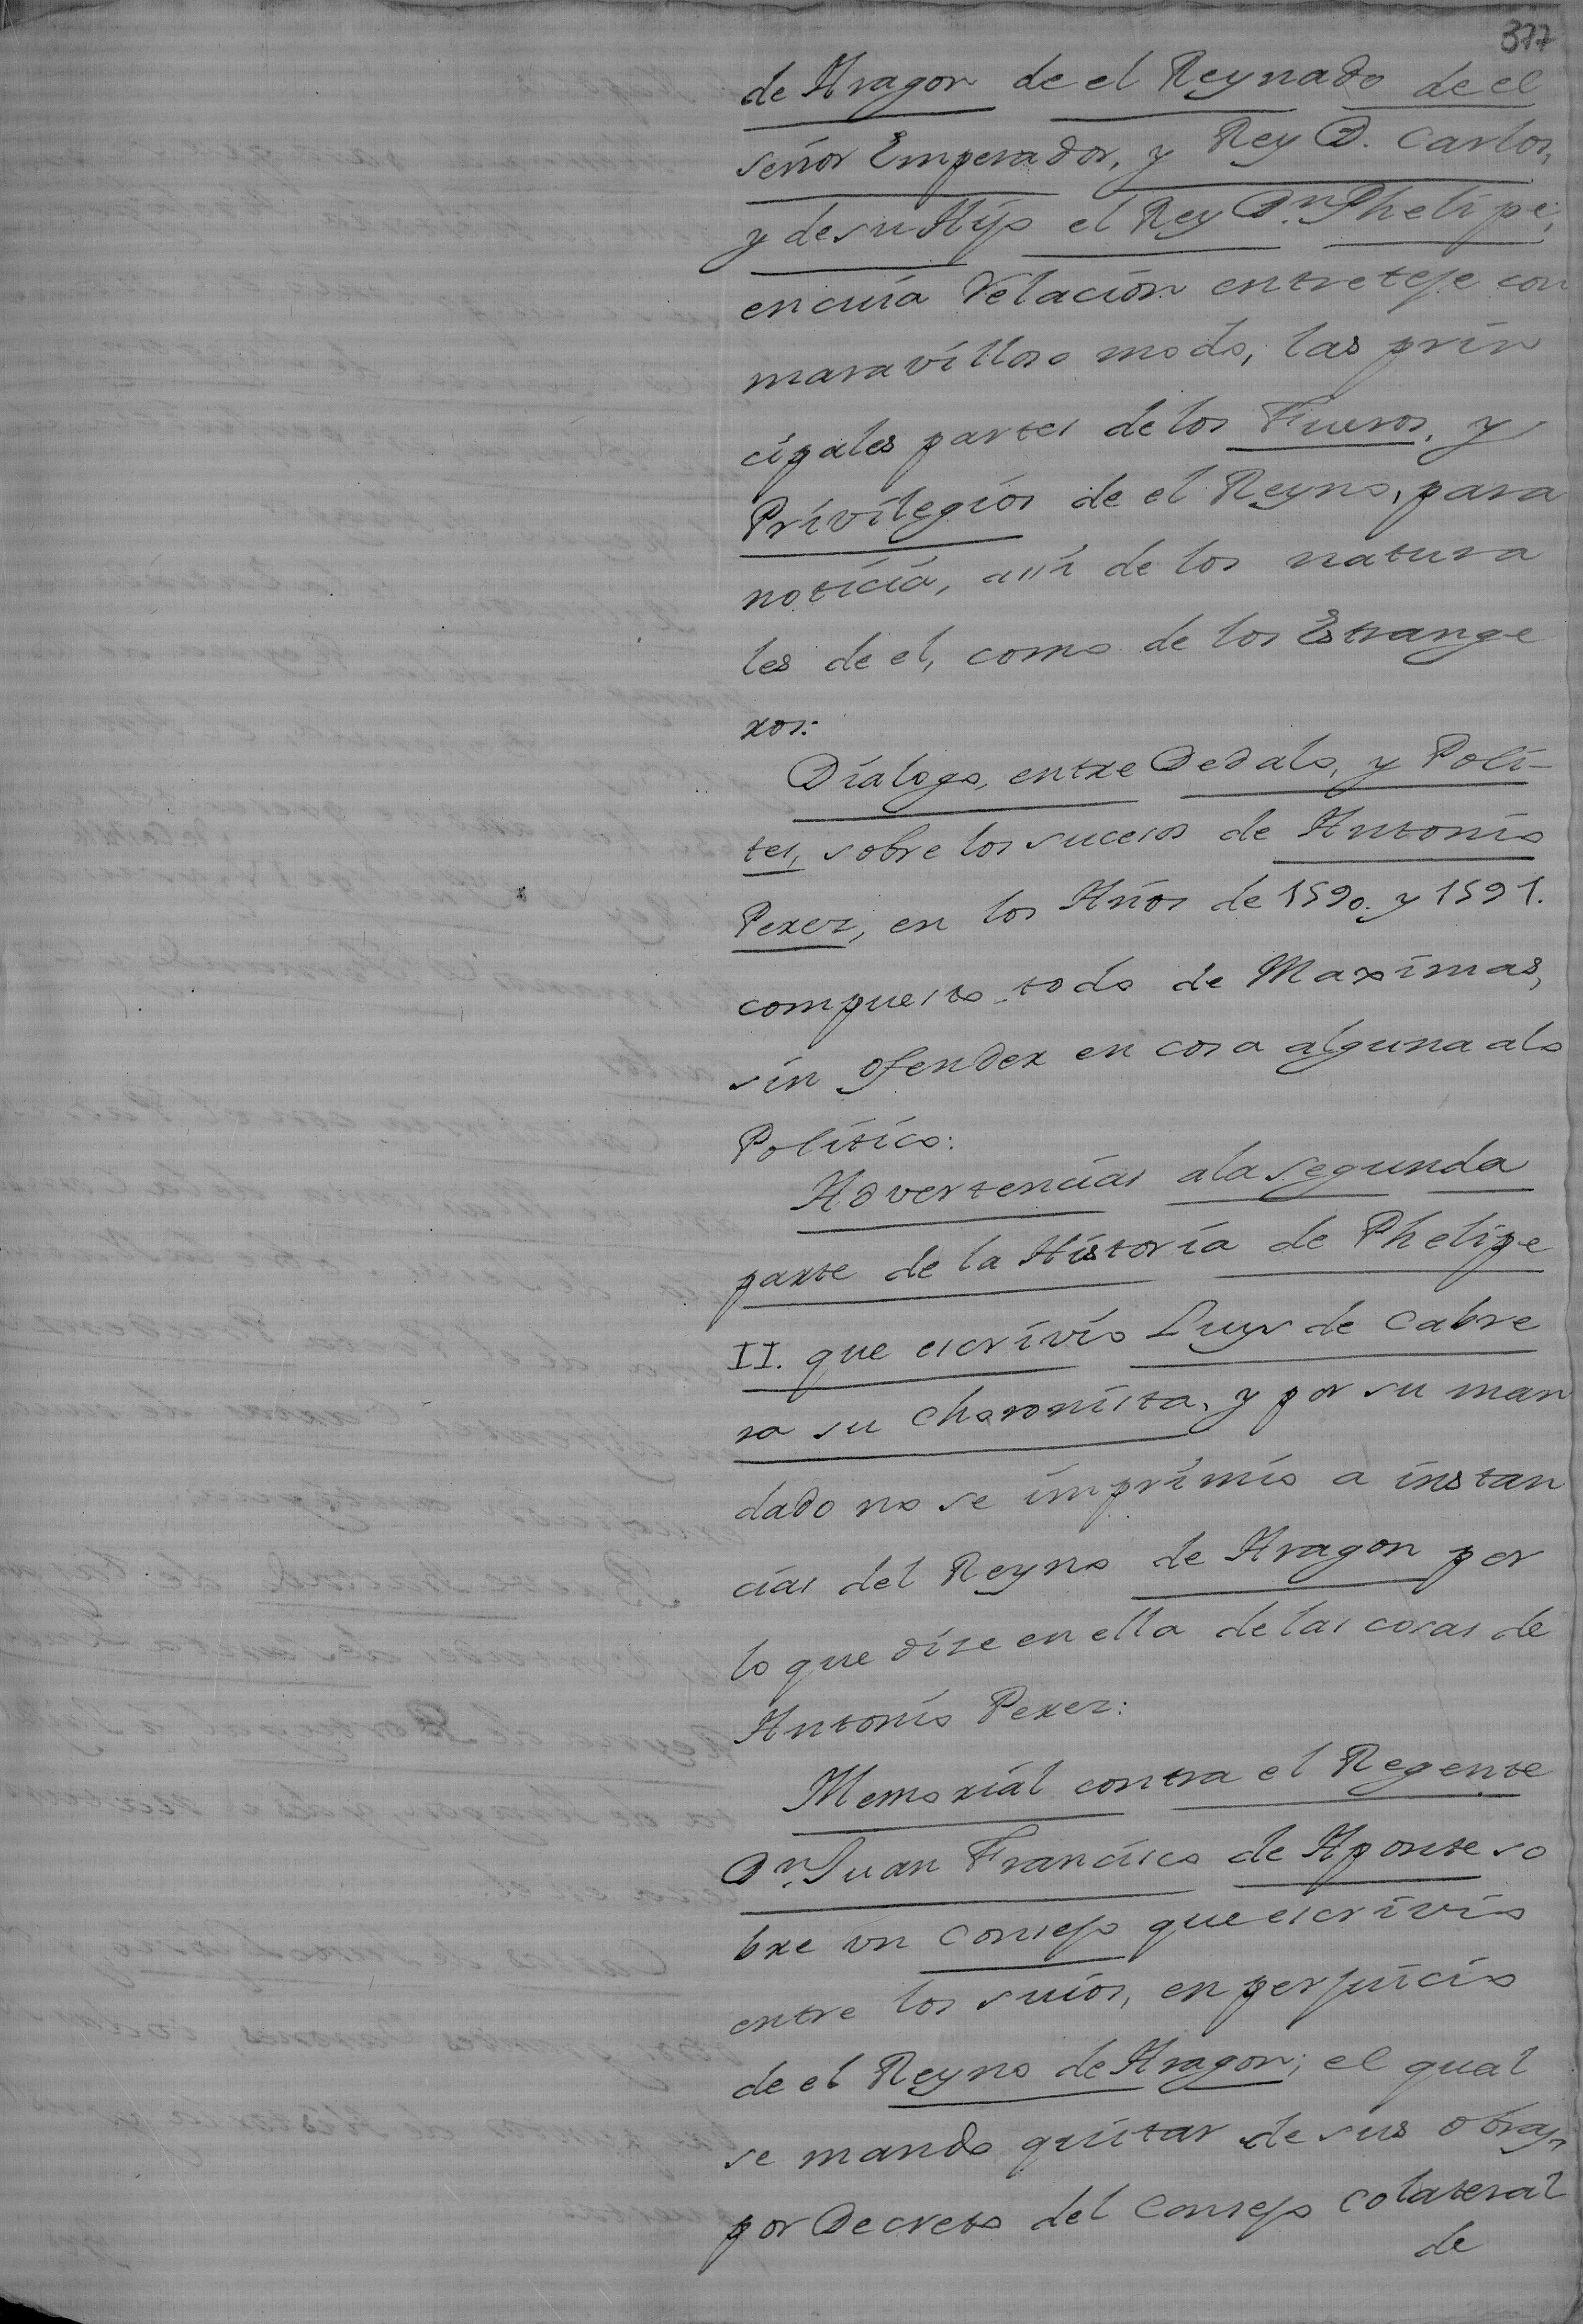 377
de Aragon de el Reynado de el
señor Emperador, y Rey D. Carlos,
y de su Hijo el Rey Dn. Phelipe,
en cuia Relacion entreteje con
maravilloso modo, las prin
cipales partes de los Fueros, y
Privilegios de el Reyno, para
noticia, assi de los natura
les de el, como de los Estrange
ros:
Dialogo, entre Dedalo, y Poli-
tes, sobre los sucesos de Antonio
Perez, en los Años de 1590. y 1591.
compuesto todo de Maximas,
sin ofender en cosa alguna a lo
Politico:
Advertencias a la segunda
parte de la Historia de Phelipe
II. que escrivio Luys de Cabre
ra su Choronista, y por su man
dado no se imprimio a instan
cias del Reyno de Aragon por
lo que dize en ella de las cosas de
Antonio Perez:
Memorial contra el Regente
Dn. Juan Francisco de Aponte so
bre un Consejo que escrivio
entre los suios, en perjuicio
de el Reyno de Aragon; el qual
se mando quitar de sus obras,
por Decreto del Consejo Colateral
de